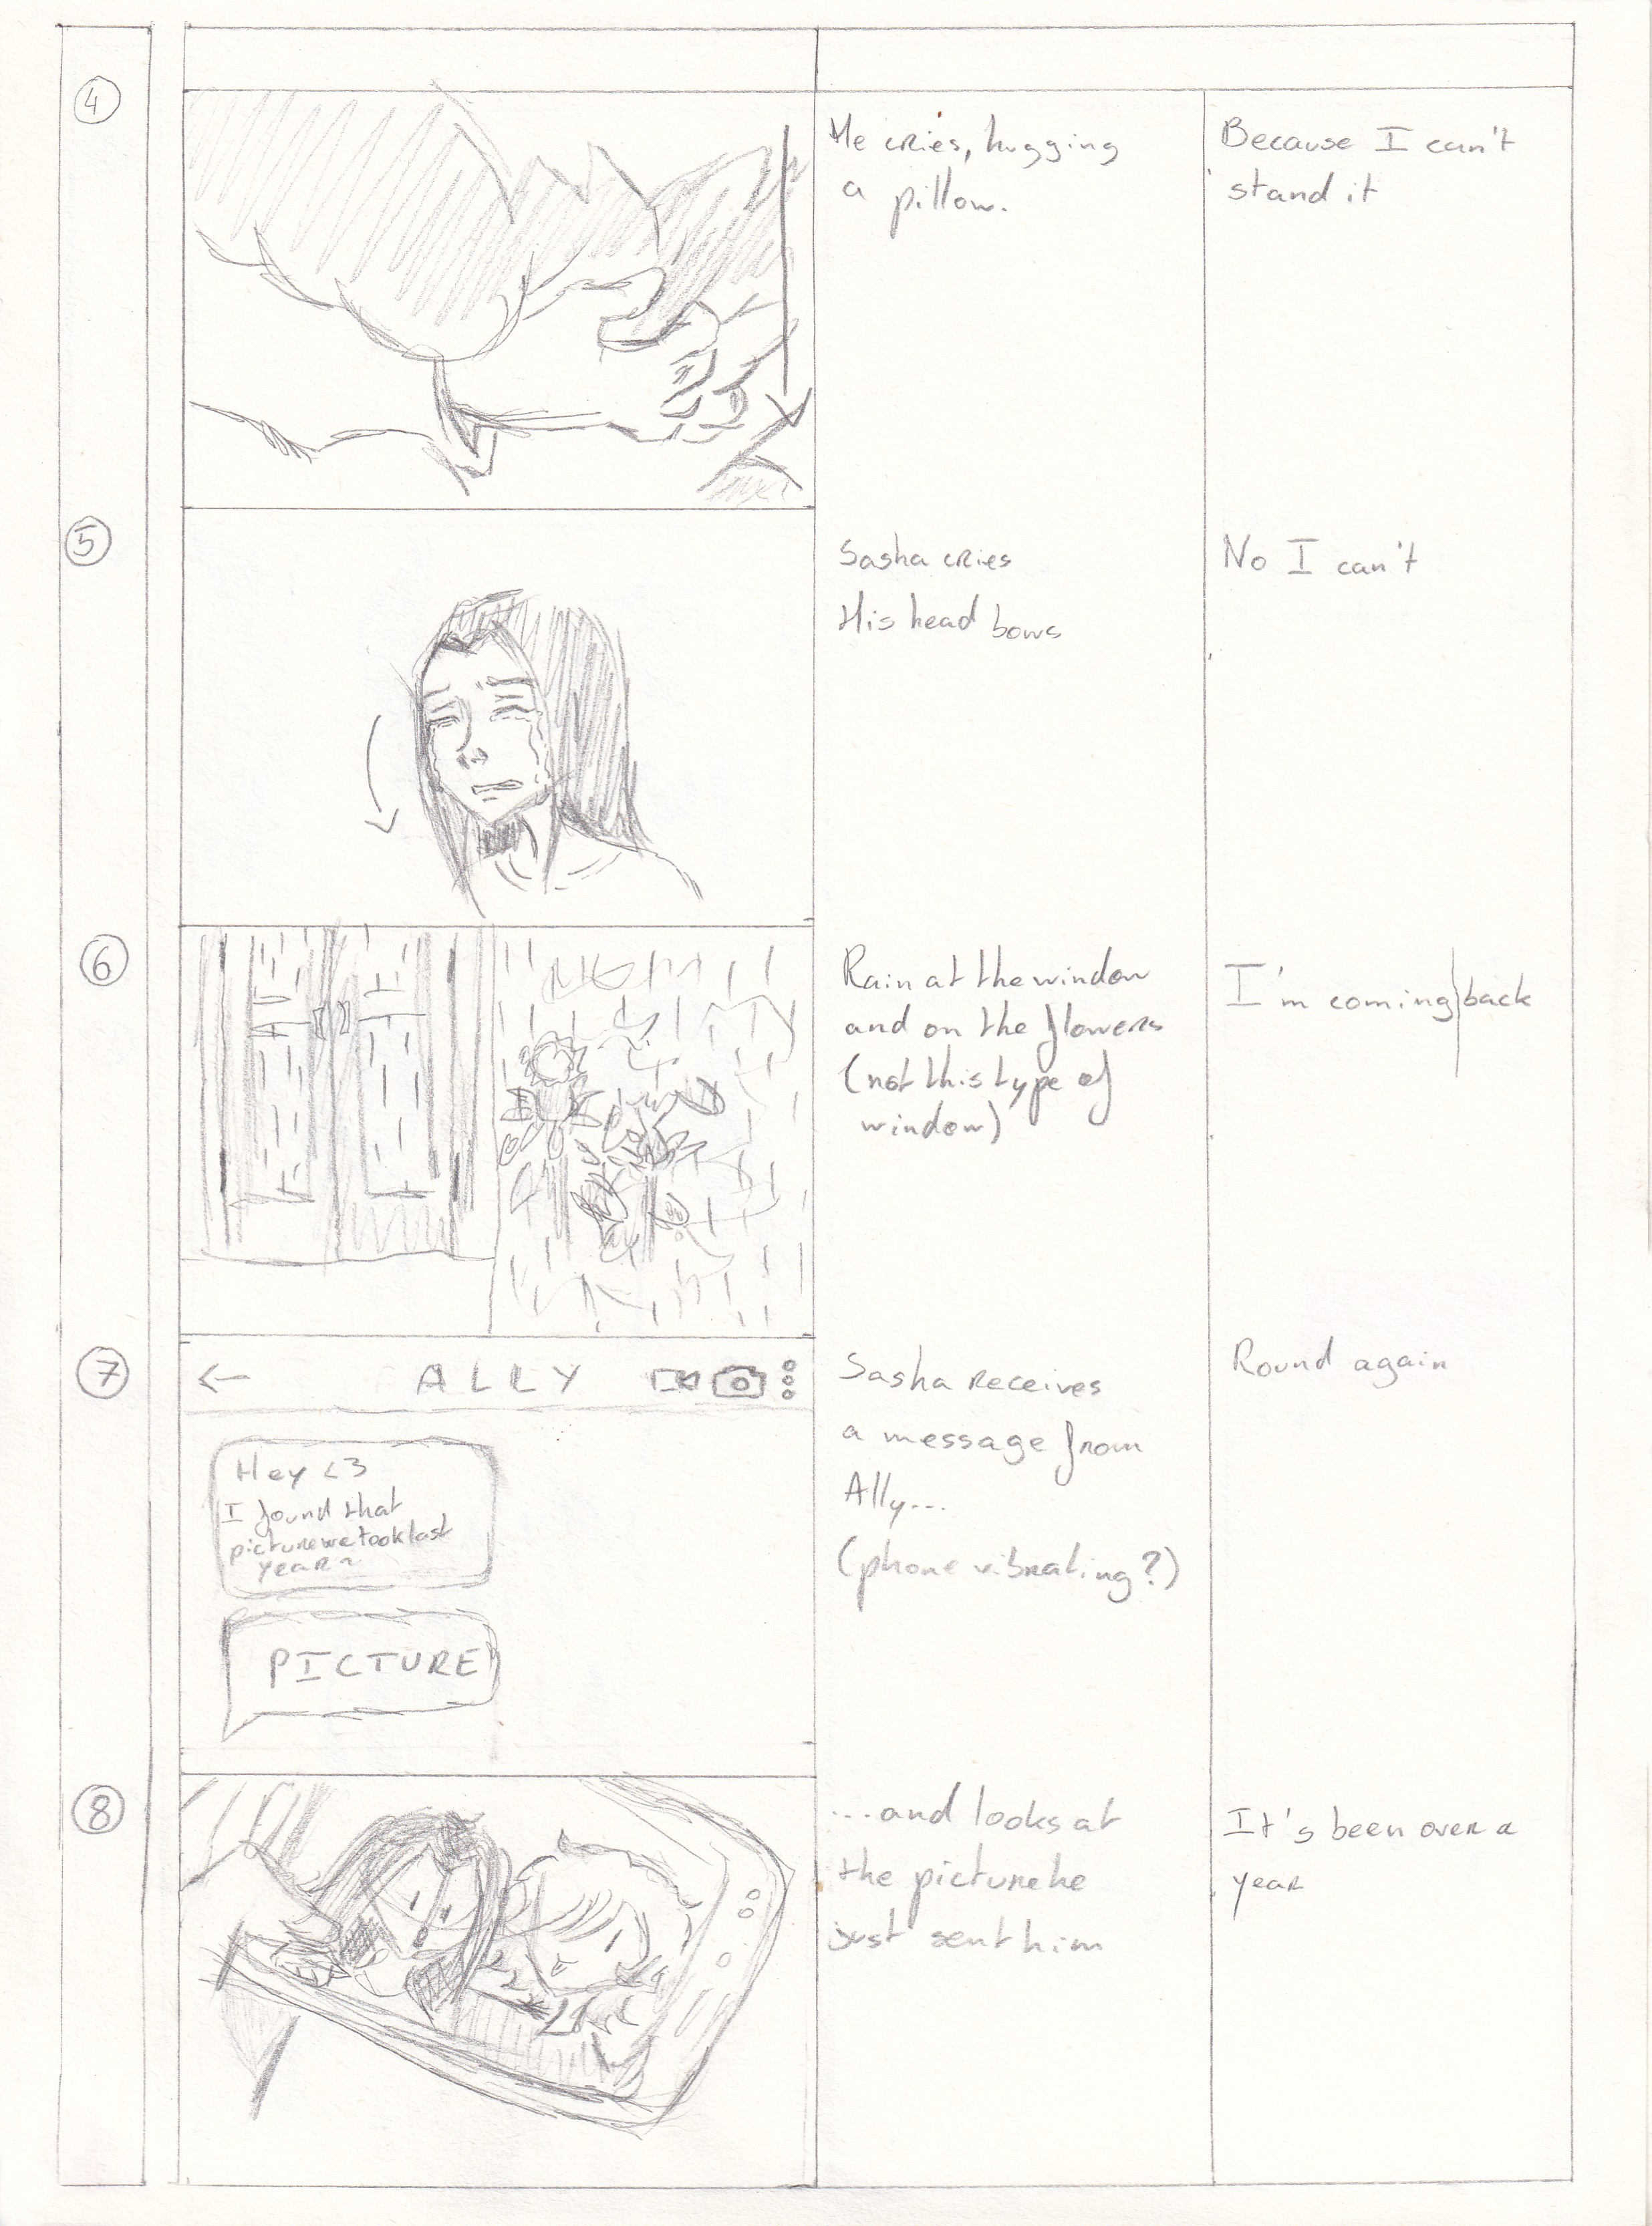 4
He cries, hugging
a pillow.
Because I can't
stand it
5
Sasha cries
His head bows
No I can't
6
Rain at the window
and on the flowers
(not this type of
window)
I'm coming|back
7
ALLY
Hey <3
I found that
picture we took last
year~
PICTURE
Sasha receives
a message from
Ally...
(phone vibrating?)
Round again
8
...and looks at
the picture he
just sent him
It's been over a
year